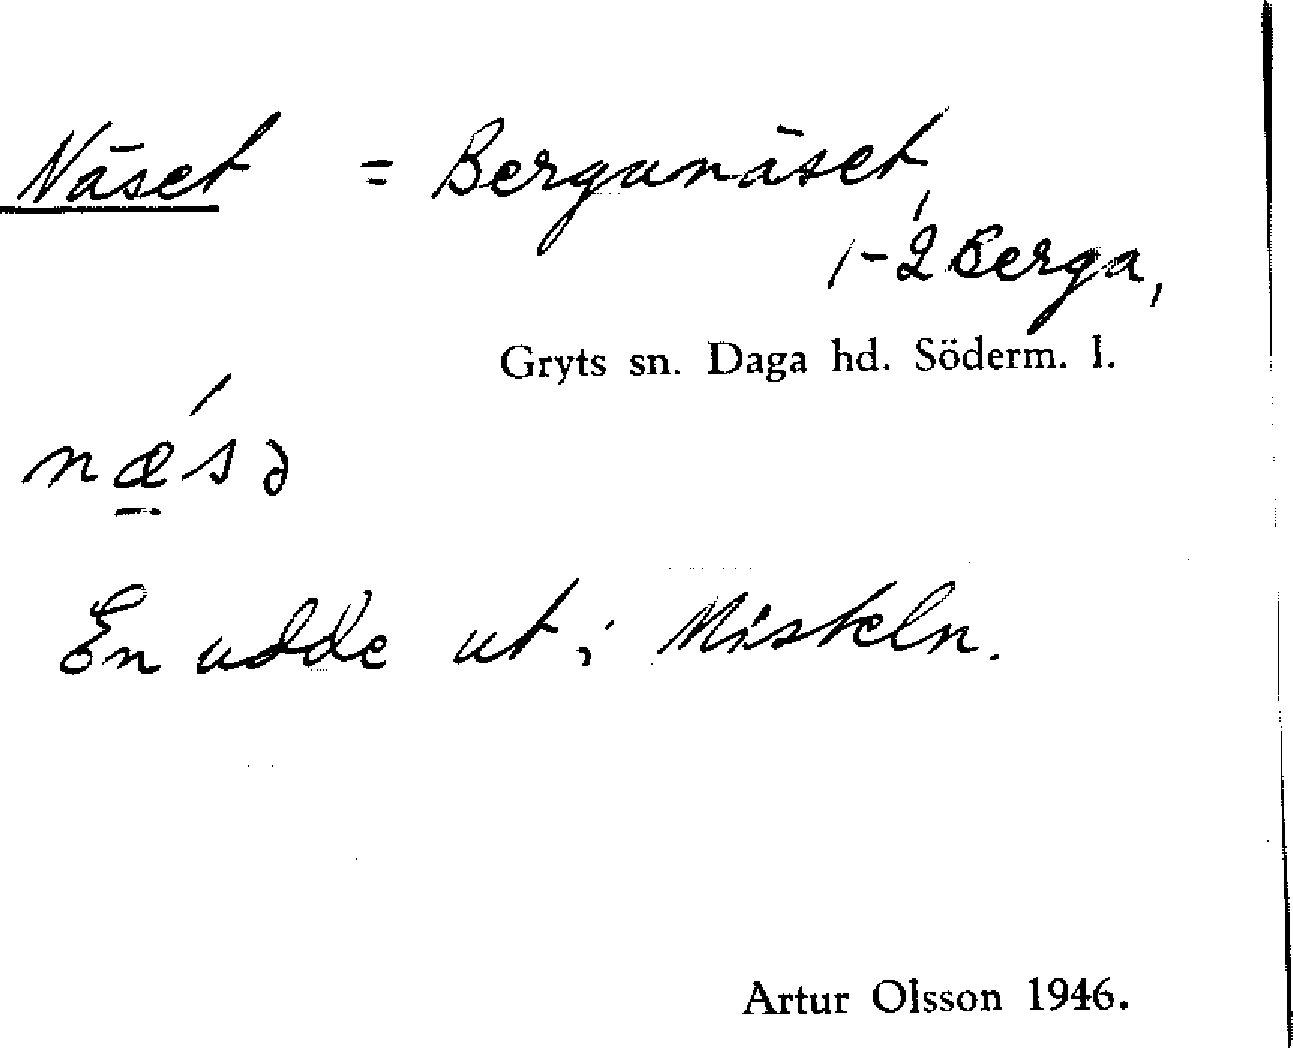 Näset = Berganäset,
1-2 Berga,
Gryts sn. Daga hd. Söderm. l.
næ̱´sə
En udde ut i Miskeln.
Artur Olsson 1946.